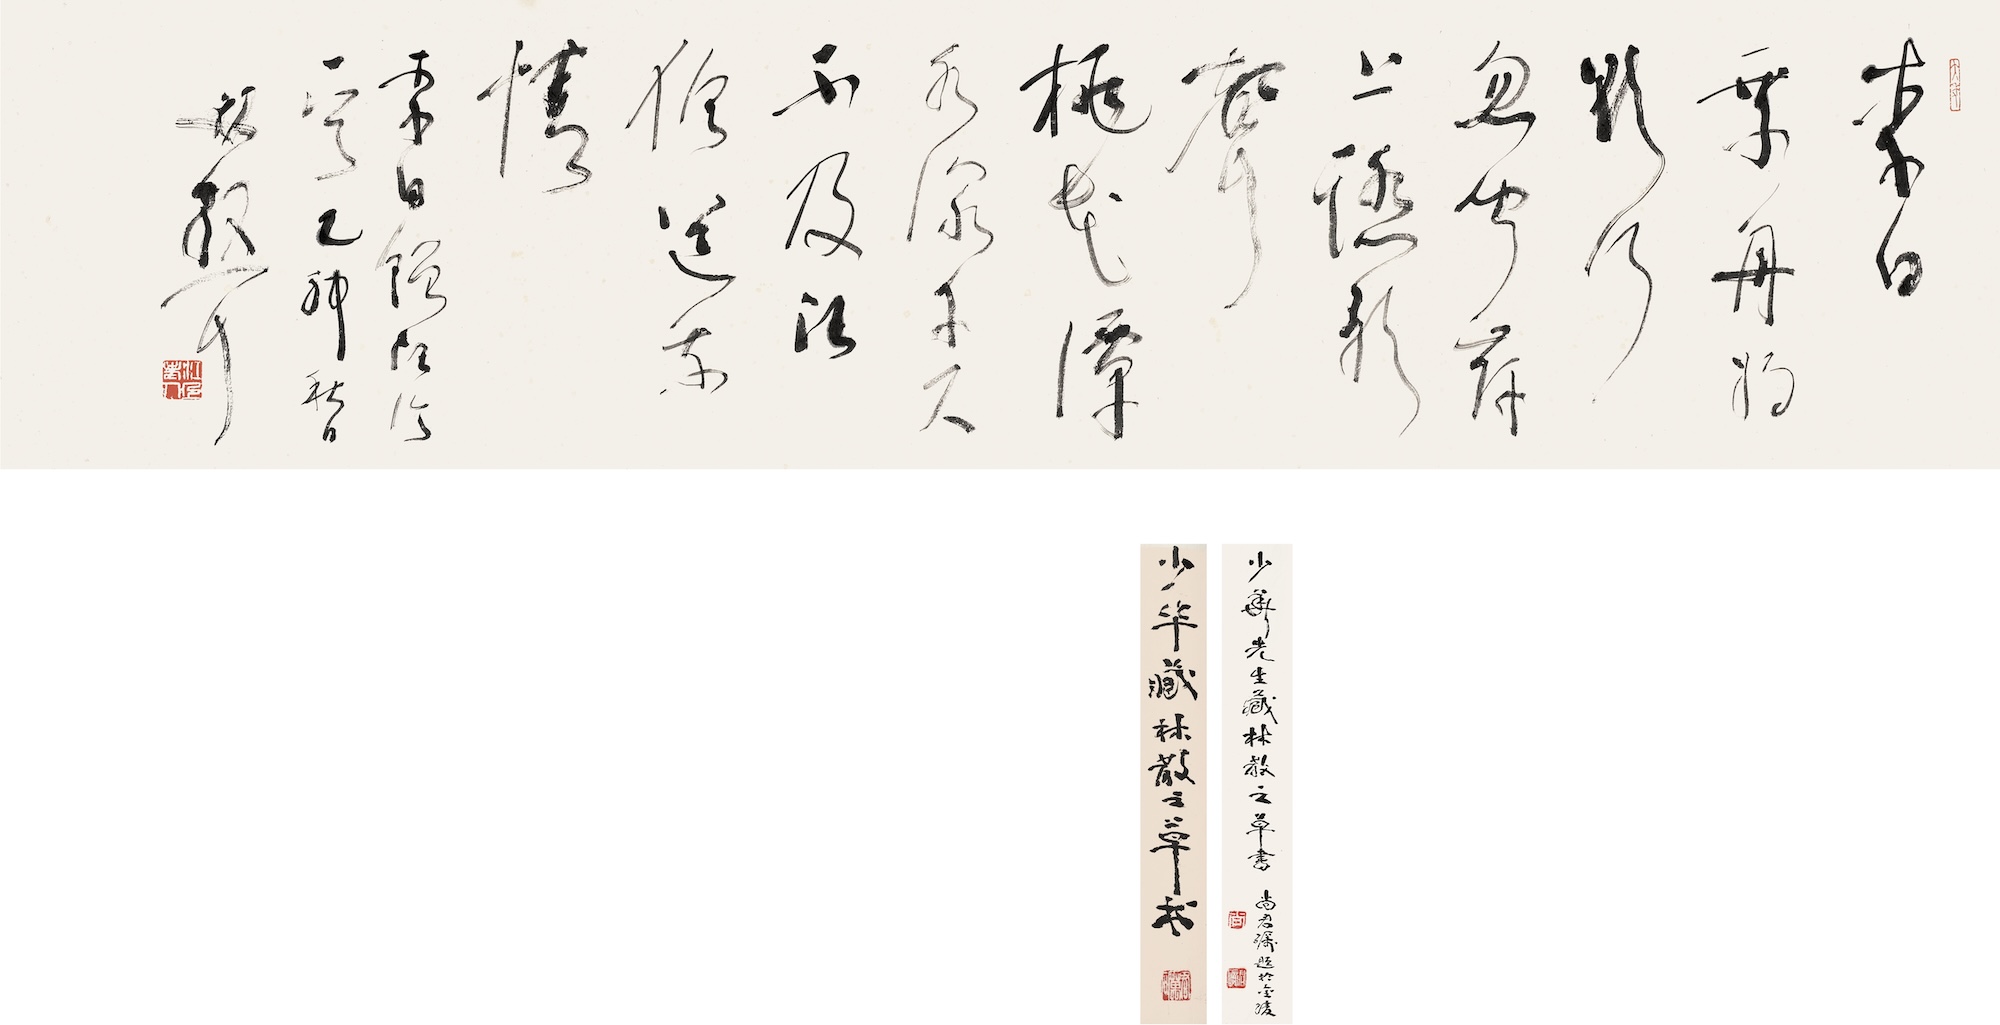 李白
乘舟将
欲行
忽聞岸
上踏歌
聲
桃花潭
水深千尺
不及汪
倫送我
情
李白贈汪倫
一首乙卯秋日
林散耳
少華先生藏林散之草書
尚君礪題於金陵
少华藏林散之草书